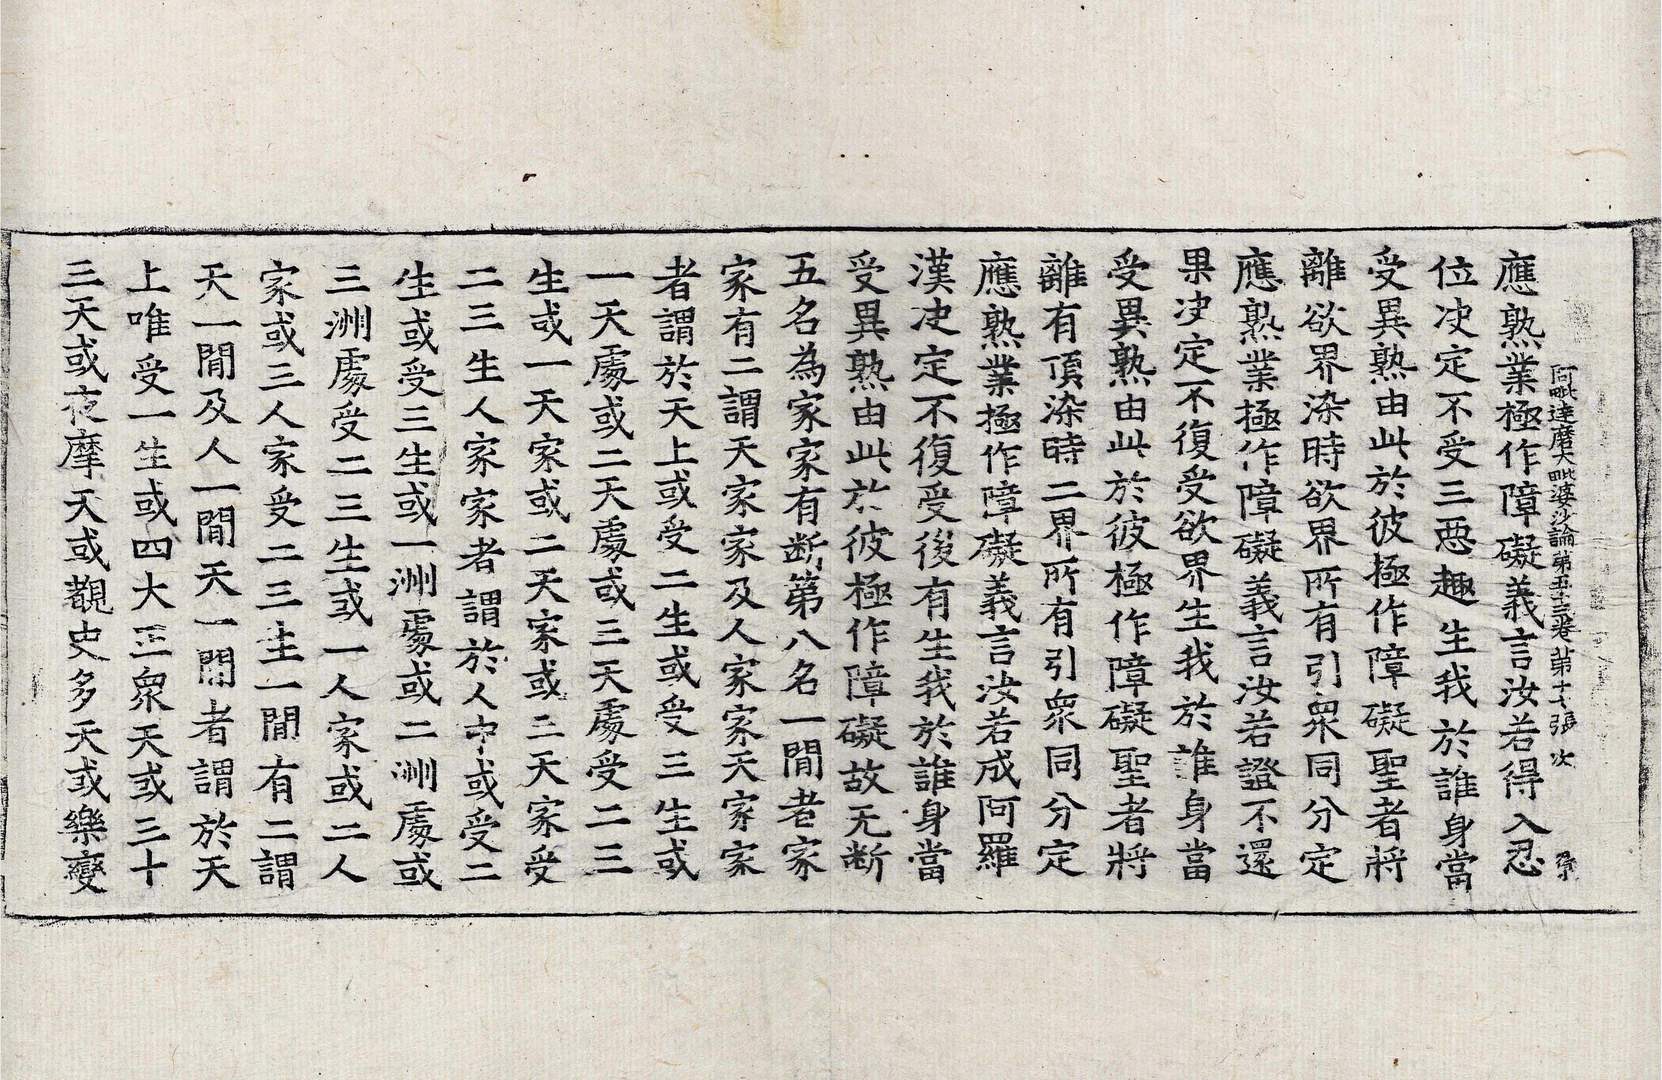 阿毗達磨大毗婆沙論第五十三卷 第十七張 次
應熟業極作障礙義言汝若得入忍
位决定不受三惡趣生我於誰身當
受異熟由此於彼極作障礙聖者將
離欲界染時欲界所有引衆同分定
應熟業極作障礙義言汝若證不還
果决定不復受欲界生我於誰身當
受異熟由此於彼極作障礙聖者將
離有頂染時二界所有引衆同分定
應熟業極作障礙義言汝若成阿羅
漢决定不復受後有生我於誰身當
受異熟由此於彼極作障礙故无断
五名為家家有断第八名一閒者家
家有二謂天家家及人家家天家家
者謂於天上或受二生或受三生或
一天處或二天處或三天處受二三
生或一天家或二天家或三天家受
二三生人家家者謂於人中或受二
生或受三生或一洲處或二洲處或
三洲處受二三生或一人家或二人
家或三人家受二三生一閒有二謂
天一閒及人一閒天一閒者謂於天
上唯受一生或四大王衆天或三十
三天或夜摩天或覩史多天或樂變